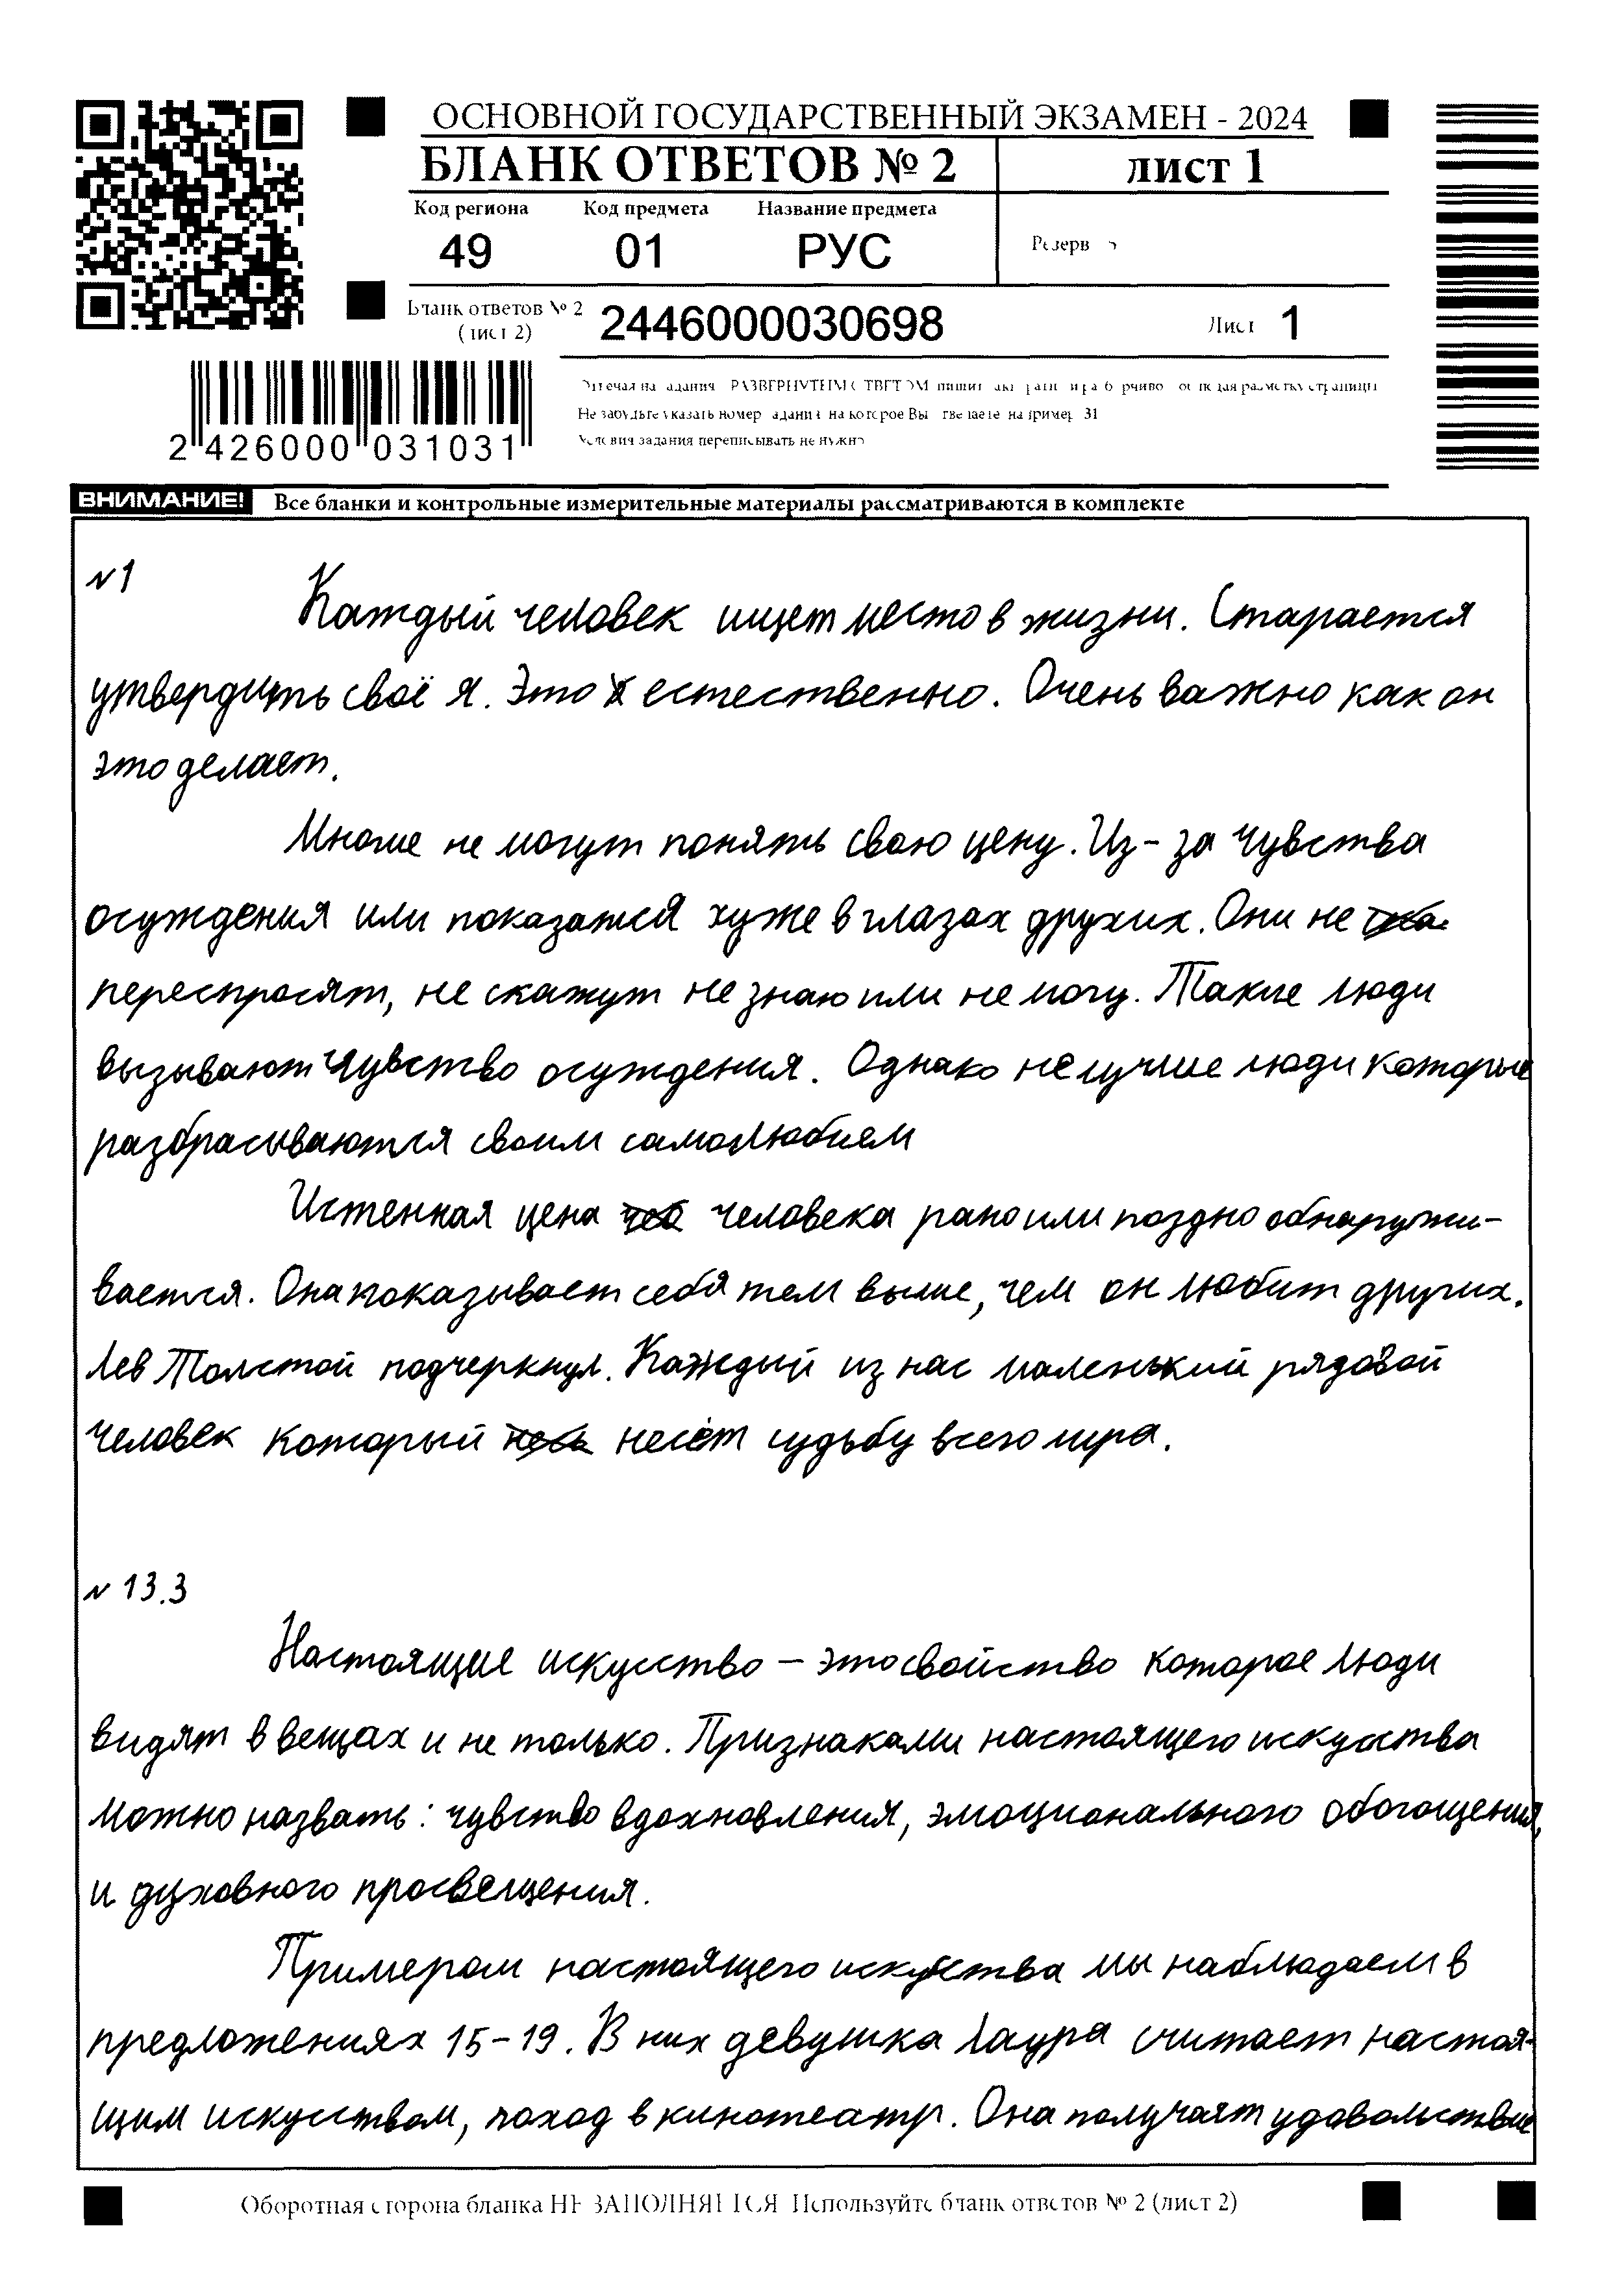 ОСНОВНОЙ ГОСУДАРСТВЕННЫЙ ЭКЗАМЕН - 2024
БЛАНК ОТВЕТОВ № 2
лист 1
Код региона Код предмета Название предмета
49 01 РУС
Резерв
Бланк ответов № 2
(лист 2)
2446000030698
Лист 1
2 426000 031031
Не забудьте указать номер задания на которое Вы отвечаете например 31
Условия задания переписывать не нужно
ВНИМАНИЕ! Все бланки и контрольные измерительные материалы рассматриваются в комплекте
N1
Каждый человек ищет место в жизни. Старается
утвердить своё я. Это естественно. Очень важно как он
это делает.
Многие не могут понять свою цену. Из-за чувства
осуждения или показатся хуже в глазах других. Они не
переспросят, не скажут не знаю или не могу. Такие люди
вызывают чувство осуждения. Однако не лучше люди которые
разбрасываются своим самолюбием
Истенная цена человека рано или поздно обнаружи-
вается. Она показывает себя тем выше, чем он любит других.
Лев Толстой подчеркнул. Каждый из нас маленький рядовой
человек который несёт судьбу всего мира.
N 13.3
Настоящие искусство – это свойство которое люди
видят в вещах и не только. Признаками настоящего искусства
можно назвать: чувство вдохновления, эмоционального обогощения,
и духовного просвещения.
Примером настоящего искусства мы наблюдаем в
предложениях 15-19. В них девушка Лаура считает настоя-
щим искусством, поход в кинотеатр. Она получает удовольствие
Оборотная сторона бланка НЕ ЗАПОЛНЯЕТСЯ Используйте бланк ответов № 2 (лист 2)